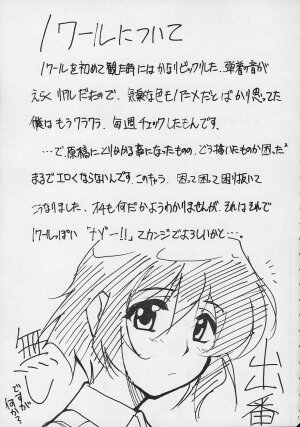 ノワールについて
ノワールを初めて観た時にはかなりビックリした。弾着の音が
えらくリアルだったので、気楽な色モノアニメだとばかり思ってた
僕はもうクラクラ、毎週チェックしたもんです。
…で原稿にとりかかる事になったものの、どう描いたものか困った²
まるでエロくならないんです。このキャラ。困って困って困り抜いて
こうなりました。オチも何だかようわかりませんが、それはそれで
ノワールっぽい「ナゾー!!」てカンジでよろしいかと…。
出番
無し
ですが
何か?